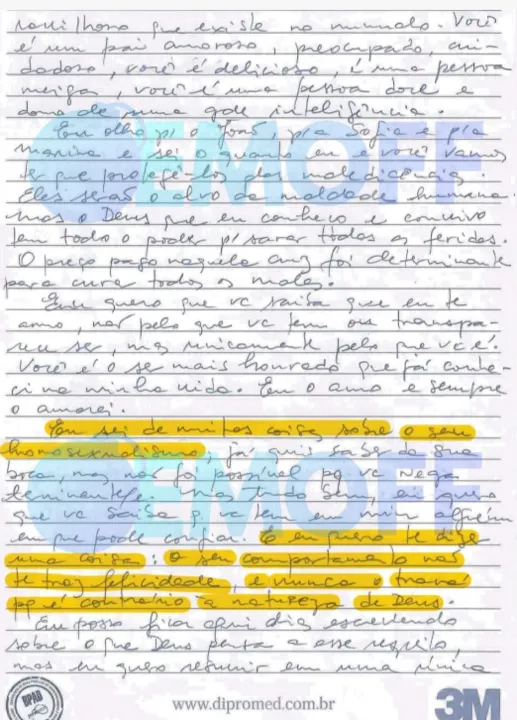 ravilhoso que existe no mundo. Você
é um pai amoroso, preocupado, cui-
dadoso, você é delicioso, é uma pessoa
meiga, você é uma pessoa doce e
dona de uma gde inteligência.
Eu olho p/ o João, p/a Sofia e p/a
e sei o quanto eu e você vamos
ter que protegê-los das maledicências.
Eles serão o alvo da maldade humana.
Mas o Deus que eu conheço e convivo
tem todo o poder p/ sarar todas as feridas.
O preço pago naquela cruz foi determinante
para curar todos os males.
quero que vc saiba que eu te
amo, não pelo que vc tem ou transpa-
ser, mas unicamente pelo que vc é.
Você é o ser mais honrado que já conhe-
ci na minha vida. Eu o amo e sempre
o amarei.
Eu sei de muitas coisas sobre o seu
homosexualismo, já quis saber da sua
boca, mas não foi possível pq vc nega
Mas tudo bem, eu quero
que vc saiba q. vc tem em mim alguém
em que pode confiar. E eu quero te dizer
uma coisa: o seu comportamento não
te traz felicidade, e nunca o trará
pq é contrário à natureza de Deus.
Eu posso ficar aqui dias escrevendo
sobre o que Deus pensa a esse respeito,
mas eu quero resumir em uma única
EMOFF
EMOFF
DPAD
www.dipromed.com.br
3M